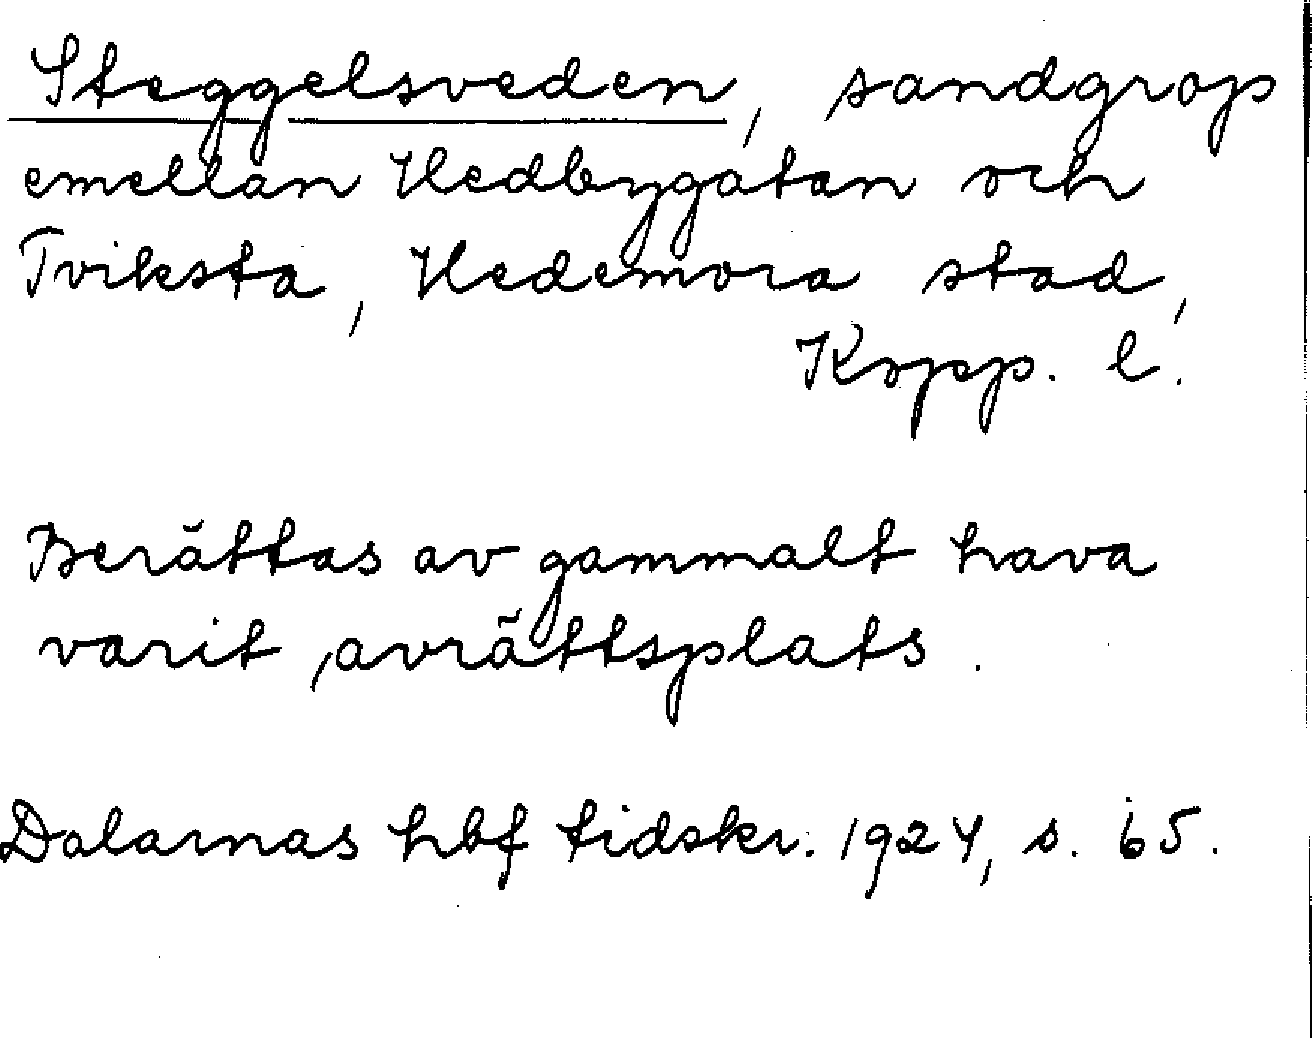 Steggelsveden, sandgrop
emellan Hedbygatan och
Tviksta, Hedemora stad,
Kopp. l.
Berättas av gammalt hava
varit avrättsplats.
Dalarnas hbf tidskr. 1924, s. 65.